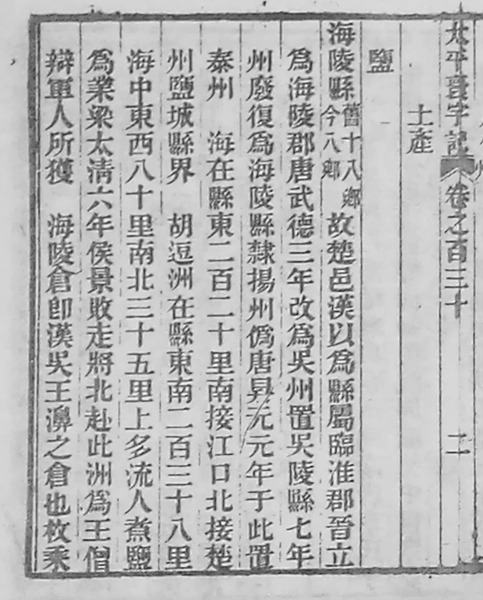 太平寰宇記 卷之百三十 二
土產
鹽
海陵縣舊十八鄉今八鄉故楚邑漢以爲縣屬臨淮郡晉立
爲海陵郡唐武德三年改爲吳州置吳陵縣七年
州廢復爲海陵縣隸揚州僞唐昇元元年于此置
泰州 海在縣東二百二十里南接江口北接楚
州鹽城縣界 胡逗洲在縣東南二百三十八里
海中東西八十里南北三十五里上多流人煮鹽
爲業梁太清六年侯景敗走將北赴此洲爲王僧
辯軍人所獲 海陵倉卽漢吳王濞之倉也枚乘